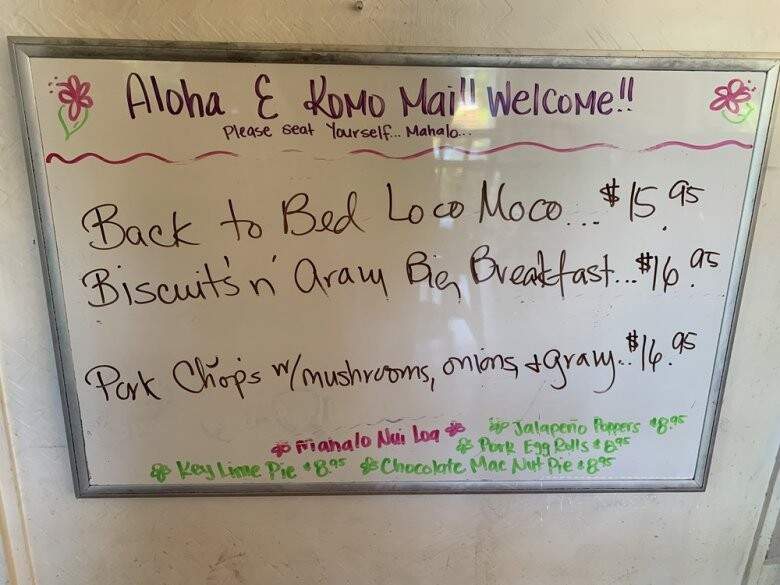 Aloha E Komo Mai!! Welcome!!
Please seat Yourself... Mahalo...
Back to Bed Loco Moco... $15.95
Biscuits n' Gravy Big Breakfast... $16.95
Pork Chops w/ mushrooms, onions, + gravy.. $16.95
Jalapeño Poppers $8.95
Mahalo Nui Loa
Pork Egg Rolls $8.95
Key Lime Pie $8.95 Chocolate Mac Nut Pie $8.95